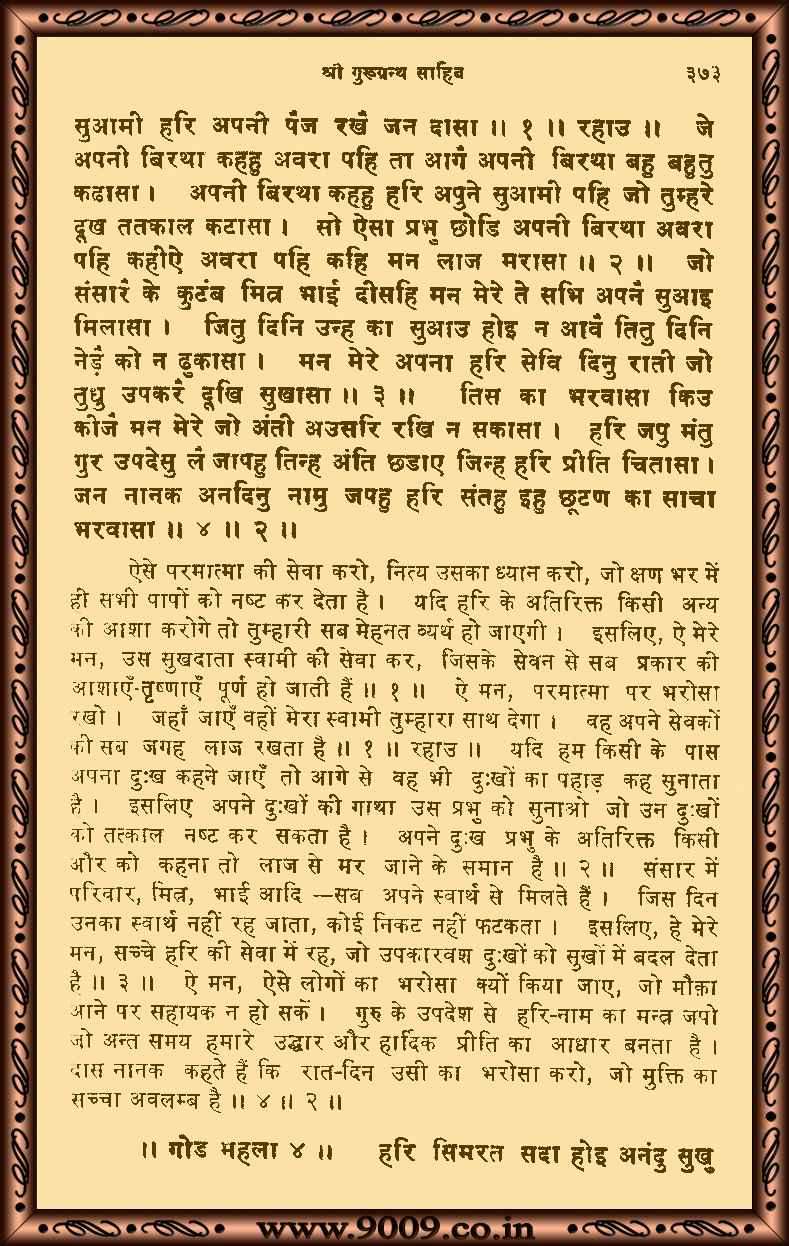 श्री गुरुग्रन्थ साहिब ३७३
सुआमी हरि अपनी पैज रखै जन दासा ॥ १ ॥ रहाउ ॥ जे
अपनी बिरथा कहहु अवरा पहि ता आगै अपनी बिरथा बहु बहुतु
कढासा । अपनी बिरथा कहहु हरि अपुने सुआमी पहि जो तुम्हरे
दूख ततकाल कटासा । सो ऐसा प्रभु छोडि अपनी बिरथा अवरा
पहि कहीऐ अवरा पहि कहि मन लाज मरासा ॥ २ ॥ जो
संसारै के कुटंब मित्र भाई दीसहि मन मेरे ते सभि अपनै सुआइ
मिलासा । जितु दिनि उन्ह का सुआउ होइ न आवै तितु दिनि
नेड़ै को न ढुकासा । मन मेरे अपना हरि सेवि दिनु राती जो
तुधु उपकरै दूखि सुखासा ॥ ३ ॥ तिस का भरवासा किउ
कीजै मन मेरे जो अंती अउसरि रखि न सकासा । हरि जपु मंतु
गुर उपदेसु लै जापहु तिन्ह अंति छडाए जिन्ह हरि प्रीति चितासा ।
जन नानक अनदिनु नामु जपहु हरि संतहु इहु छूटण का साचा
भरवासा ॥ ४ ॥ २ ॥
ऐसे परमात्मा की सेवा करो, नित्य उसका ध्यान करो, जो क्षण भर में
ही सभी पापों को नष्ट कर देता है । यदि हरि के अतिरिक्त किसी अन्य
की आशा करोगे तो तुम्हारी सब मेहनत व्यर्थ हो जाएगी । इसलिए, ऐ मेरे
मन, उस सुखदाता स्वामी की सेवा कर, जिसके सेवन से सब प्रकार की
आशाएँ-तृष्णाएँ पूर्ण हो जाती हैं ॥ १ ॥ ऐ मन, परमात्मा पर भरोसा
रखो । जहाँ जाएँ वहीं मेरा स्वामी तुम्हारा साथ देगा । वह अपने सेवकों
की सब जगह लाज रखता है ॥ १ ॥ रहाउ ॥ यदि हम किसी के पास
अपना दुःख कहने जाएँ तो आगे से वह भी दुःखों का पहाड़ कह सुनाता
है । इसलिए अपने दुःखों की गाथा उस प्रभु को सुनाओ जो उन दुःखों
को तत्काल नष्ट कर सकता है । अपने दुःख प्रभु के अतिरिक्त किसी
और को कहना तो लाज से मर जाने के समान है ॥ २ ॥ संसार में
परिवार, मित्र, भाई आदि —सब अपने स्वार्थ से मिलते हैं । जिस दिन
उनका स्वार्थ नहीं रह जाता, कोई निकट नहीं फटकता । इसलिए, हे मेरे
मन, सच्चे हरि की सेवा में रह, जो उपकारवश दुःखों को सुखों में बदल देता
है ॥ ३ ॥ ऐ मन, ऐसे लोगों का भरोसा क्यों किया जाए, जो मौक़ा
आने पर सहायक न हो सकें । गुरु के उपदेश से हरि-नाम का मन्त्र जपो
जो अन्त समय हमारे उद्धार और हार्दिक प्रीति का आधार बनता है ।
दास नानक कहते हैं कि रात-दिन उसी का भरोसा करो, जो मुक्ति का
सच्चा अवलम्ब है ॥ ४ ॥ २ ॥
॥ गोड महला ४ ॥ हरि सिमरत सदा होइ अनंदु सुखु
www.9009.co.in